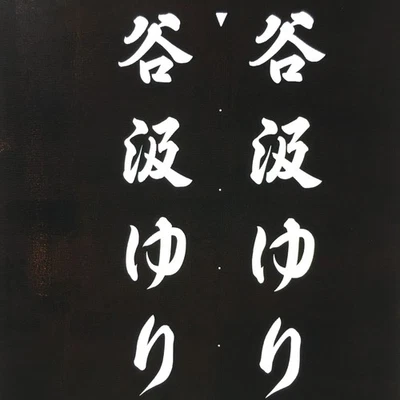 谷汲ゆり
谷汲ゆり